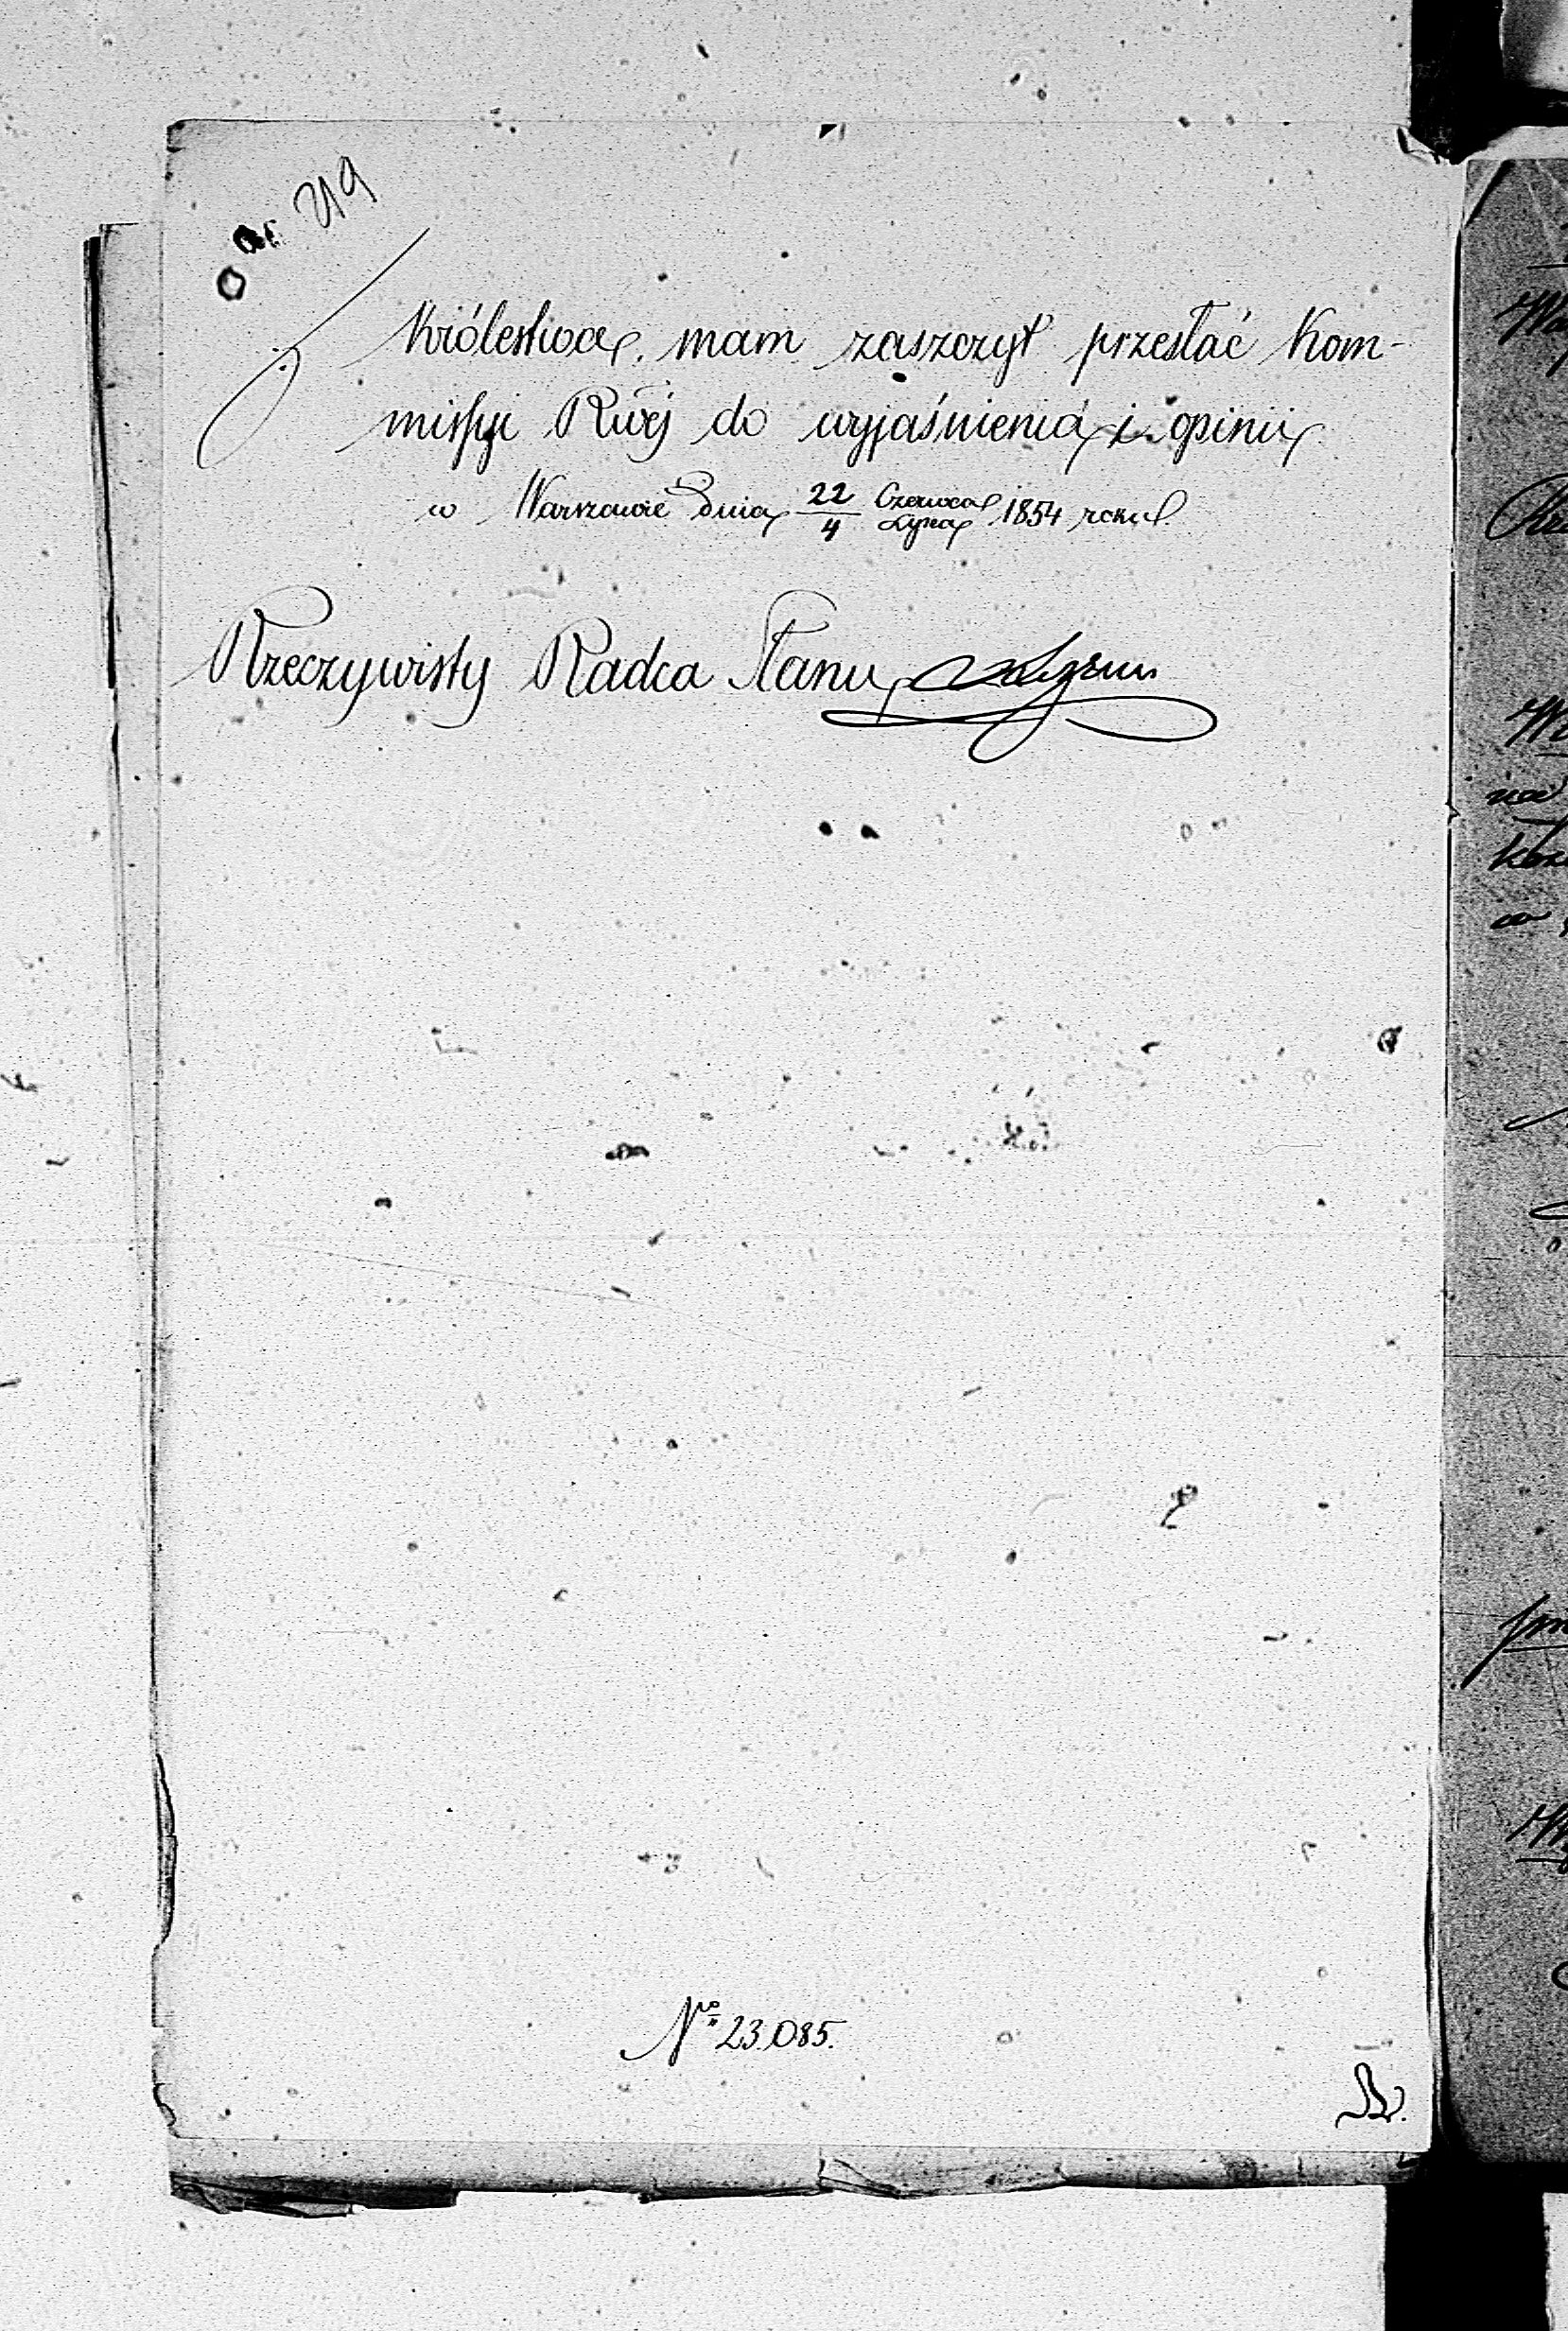 219
Królestwa, mam zaszczyt przesłać Kom-
missyi Rwéj do wyjaśnienia i opinii
w Warszawie dnia 22/4 Czerwca/Lipca 1854 roku.
Rzeczywisty Radca Stanu
No 23.085.